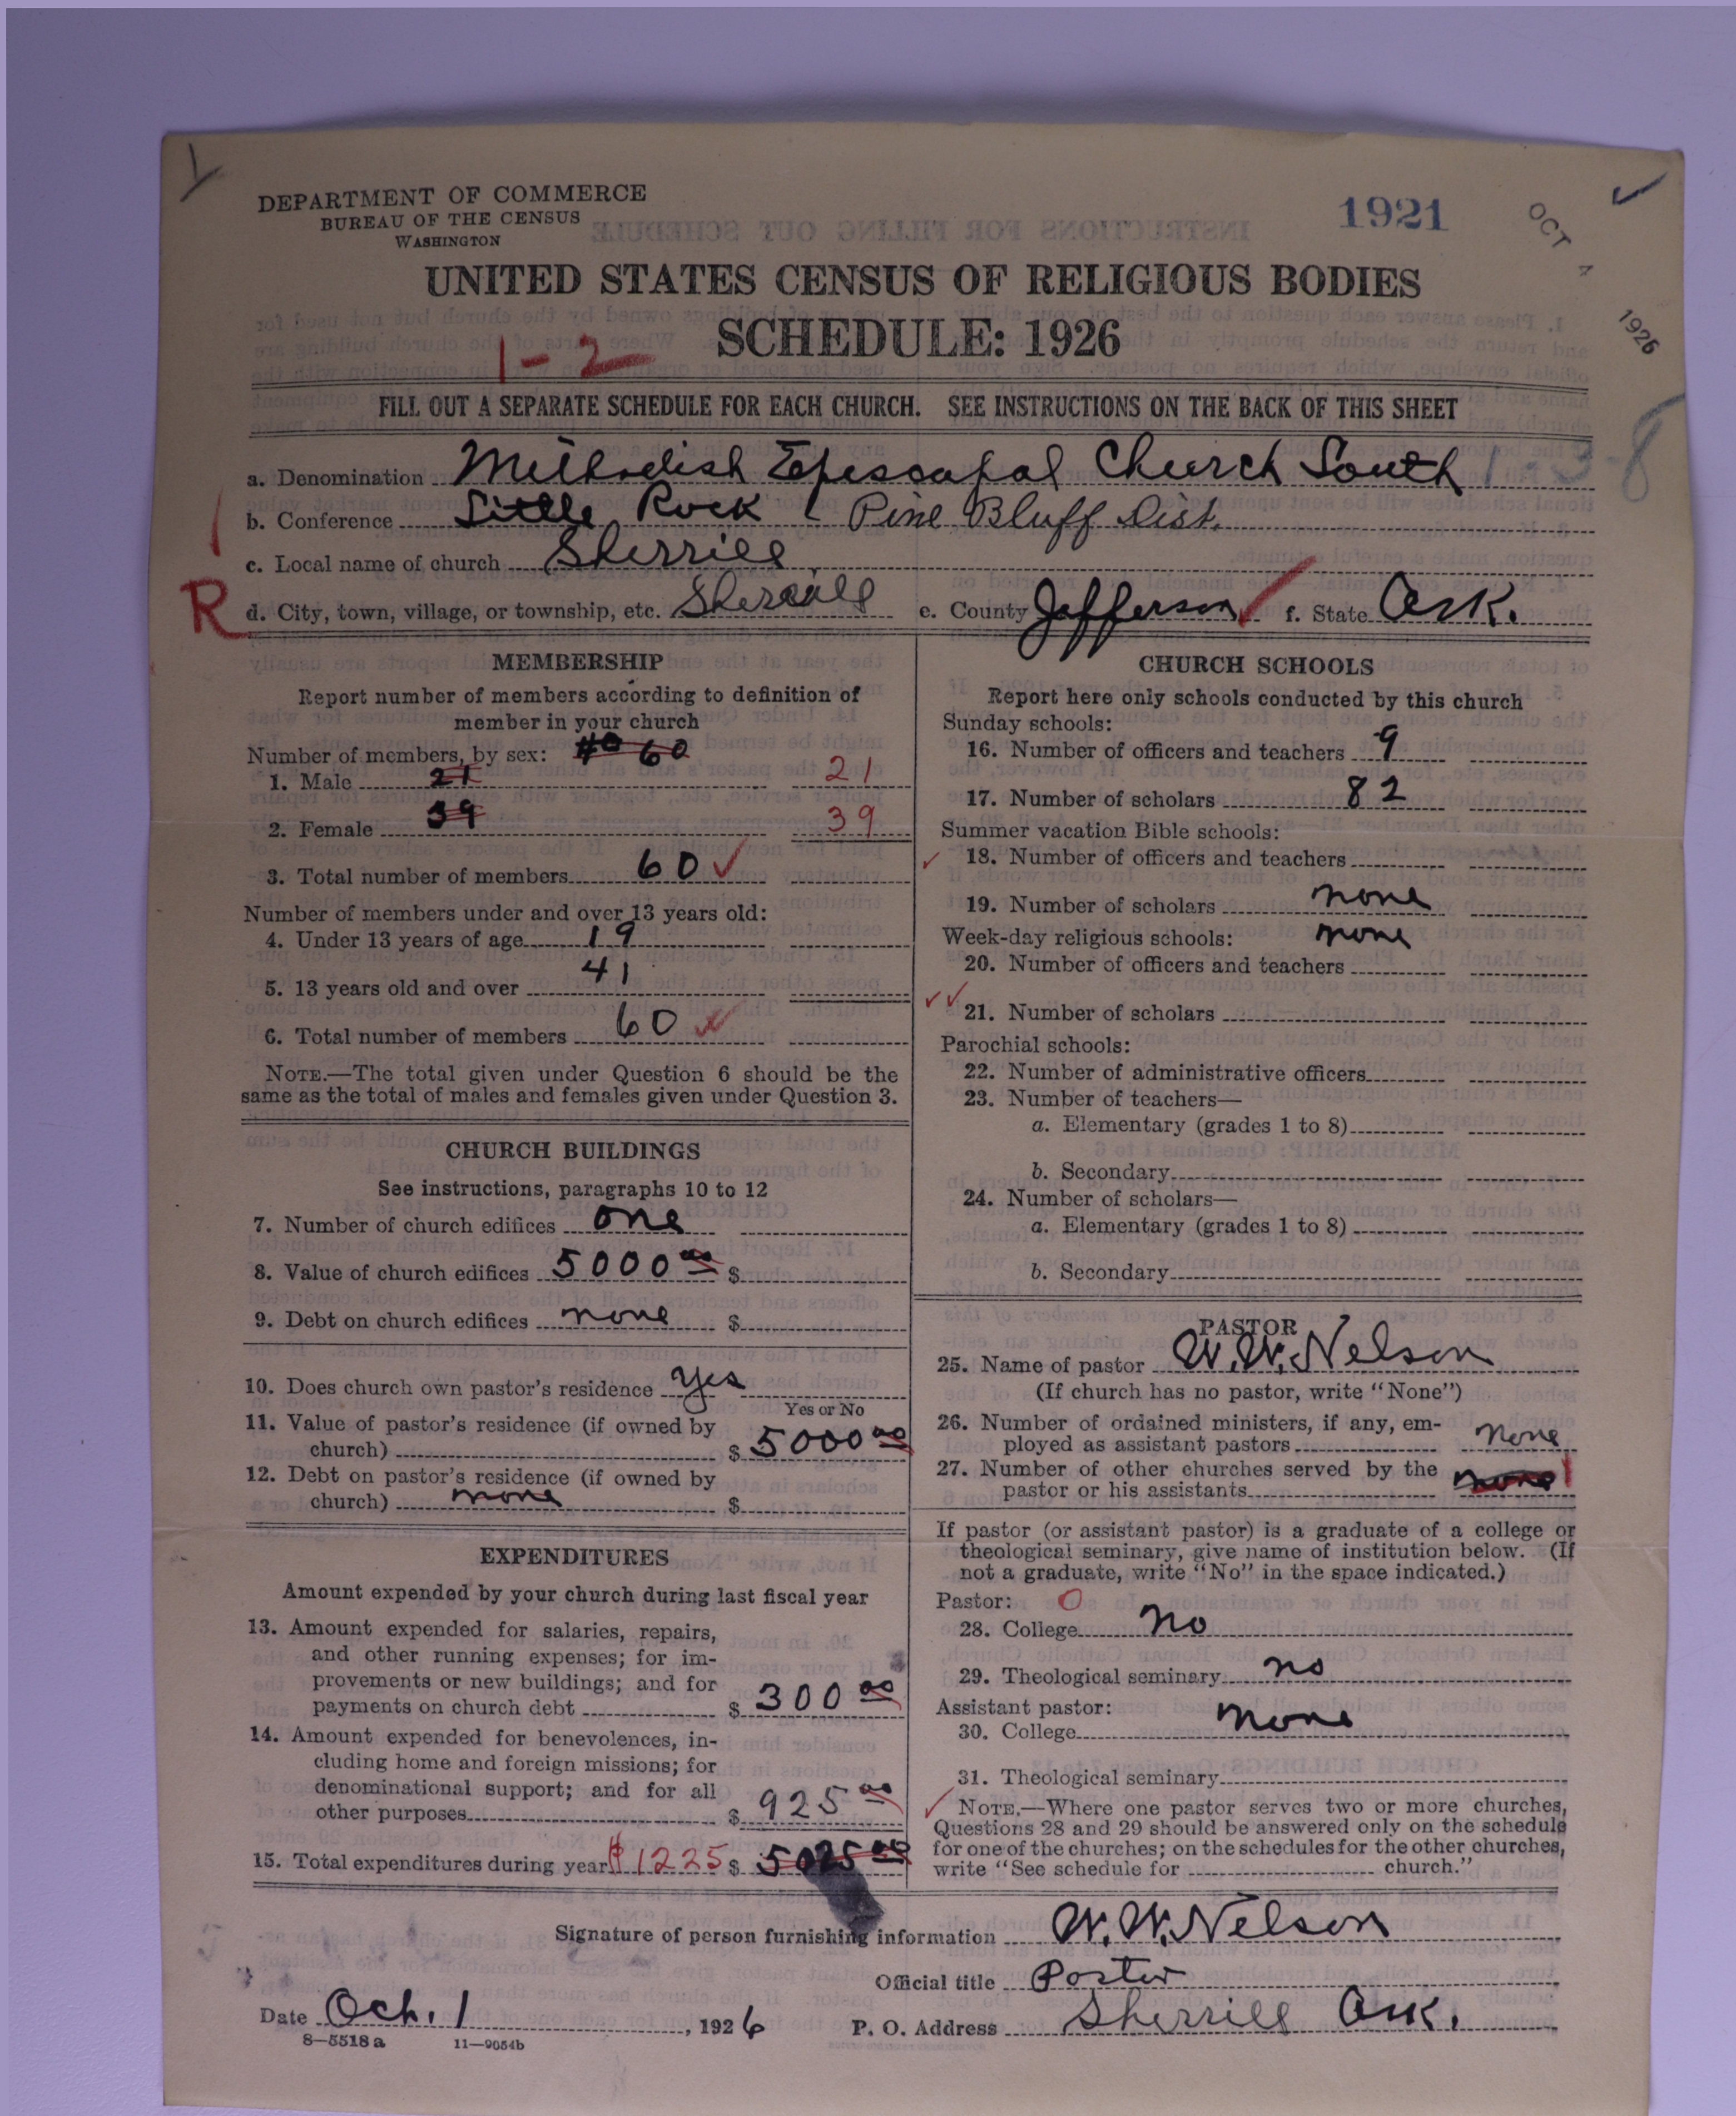 DEPARTMENT OF COMMERCE
BUREAU OF THE CENSUS
WASHINGTON
1921
OCT 4 1926
UNITED STATES CENSUS OF RELIGIOUS BODIES
SCHEDULE: 1926
1-2
FILL OUT A SEPARATE SCHEDULE FOR EACH CHURCH. SEE INSTRUCTIONS ON THE BACK OF THIS SHEET
a. Denomination Methodish Episcopal Church South 1-3-8
b. Conference Little Rock Pine Bluff Dist.
c. Local name of church Sherrill
R d. City, town, village, or township, etc. Sherrill e. County Jefferson f. State Ark.
MEMBERSHIP
Report number of members according to definition of
member in your church
Number of members, by sex: 60
1. Male 21 21
2. Female 39 39
3. Total number of members 60
Number of members under and over 13 years old:
4. Under 13 years of age 19
5. 13 years old and over 41
6. Total number of members 60
NOTE.—The total given under Question 6 should be the
same as the total of males and females given under Question 3.
CHURCH BUILDINGS
See instructions, paragraphs 10 to 12
7. Number of church edifices one
8. Value of church edifices 5000 00 $
9. Debt on church edifices none $
10. Does church own pastor's residence yes
Yes or No
11. Value of pastor's residence (if owned by
church) $ 5000 00
12. Debt on pastor's residence (if owned by
church) none $
EXPENDITURES
Amount expended by your church during last fiscal year
13. Amount expended for salaries, repairs,
and other running expenses; for im-
provements or new buildings; and for
payments on church debt $ 300 00
14. Amount expended for benevolences, in-
cluding home and foreign missions; for
denominational support; and for all
other purposes $ 925 00
15. Total expenditures during year $1225 $ 5025 00
CHURCH SCHOOLS
Report here only schools conducted by this church
Sunday schools:
16. Number of officers and teachers 9
17. Number of scholars 82
Summer vacation Bible schools:
18. Number of officers and teachers
19. Number of scholars none
Week-day religious schools: none
20. Number of officers and teachers
21. Number of scholars
Parochial schools:
22. Number of administrative officers
23. Number of teachers—
a. Elementary (grades 1 to 8)
b. Secondary
24. Number of scholars—
a. Elementary (grades 1 to 8)
b. Secondary
PASTOR
25. Name of pastor W. W. Nelson
(If church has no pastor, write "None")
26. Number of ordained ministers, if any, em-
ployed as assistant pastors none
27. Number of other churches served by the
pastor or his assistants none 1
If pastor (or assistant pastor) is a graduate of a college or
theological seminary, give name of institution below. (If
not a graduate, write "No" in the space indicated.)
Pastor: 0
28. College no
29. Theological seminary no
Assistant pastor:
30. College none
31. Theological seminary
NOTE.—Where one pastor serves two or more churches,
Questions 28 and 29 should be answered only on the schedule
for one of the churches; on the schedules for the other churches,
write "See schedule for church."
Signature of person furnishing information W. W. Nelson
Official title Paster
Date Oct. 1, 1926 P. O. Address Sherrill Ark.
8—5518 a 11—9054b